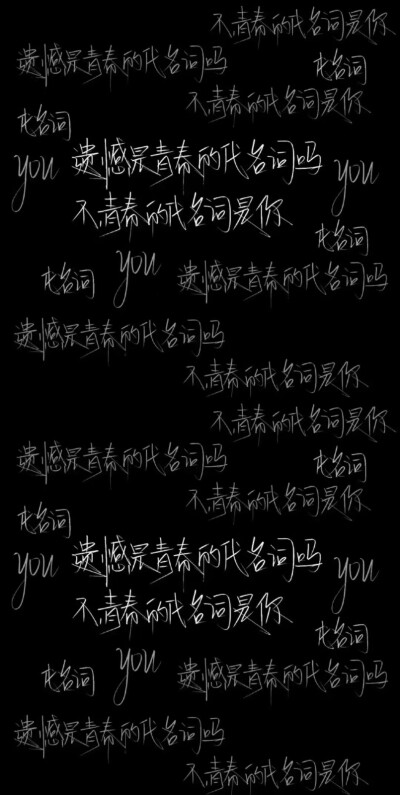 不,青春的代名词是你
遗憾是青春的代名词吗
代名词
不,青春的代名词是你
代名词
遗憾是青春的代名词吗
you
you
不,青春的代名词是你
代名词
you
代名词
遗憾是青春的代名词吗
遗憾是青春的代名词吗
不,青春的代名词是你
不,青春的代名词是你
遗憾是青春的代名词吗
代名词
不,青春的代名词是你
代名词
遗憾是青春的代名词吗
you
you
不,青春的代名词是你
代名词
you
代名词
遗憾是青春的代名词吗
遗憾是青春的代名词吗
不,青春的代名词是你